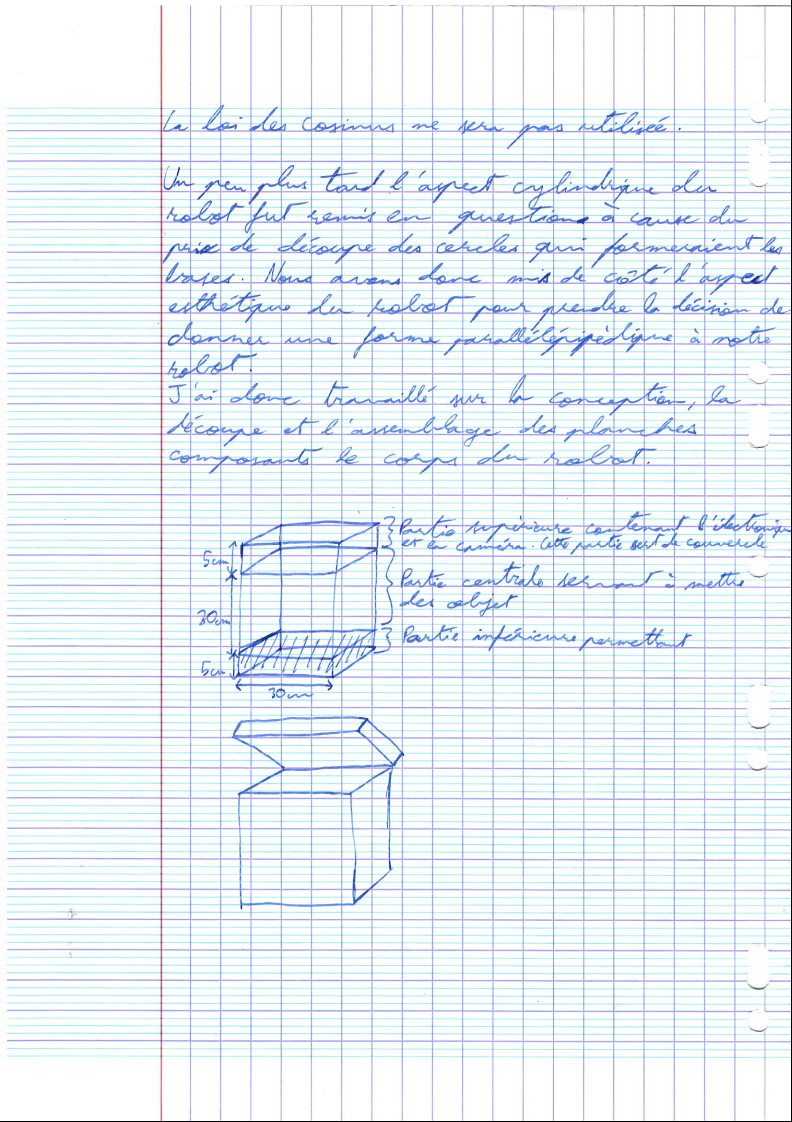 La loi des cosinus ne sera pas utilisée.
Un peu plus tard l'aspect cylindrique du
robot fut remis en question à cause du
prix de découpe des cercles qui formeraient les
bases. Nous avons donc mis de côté l'aspect
esthétique du robot pour prendre la décision de
donner une forme parallélépipédique à notre
robot.
J'ai donc travaillé sur la conception, la
découpe et l'assemblage des planches
composants le corps du robot.
Partie supérieure contenant l'électronique
et la caméra. Cette partie sert de couvercle
5cm
Partie centrale servant à mettre
des objet
30cm
Partie inférieure permettant
5cm
30cm